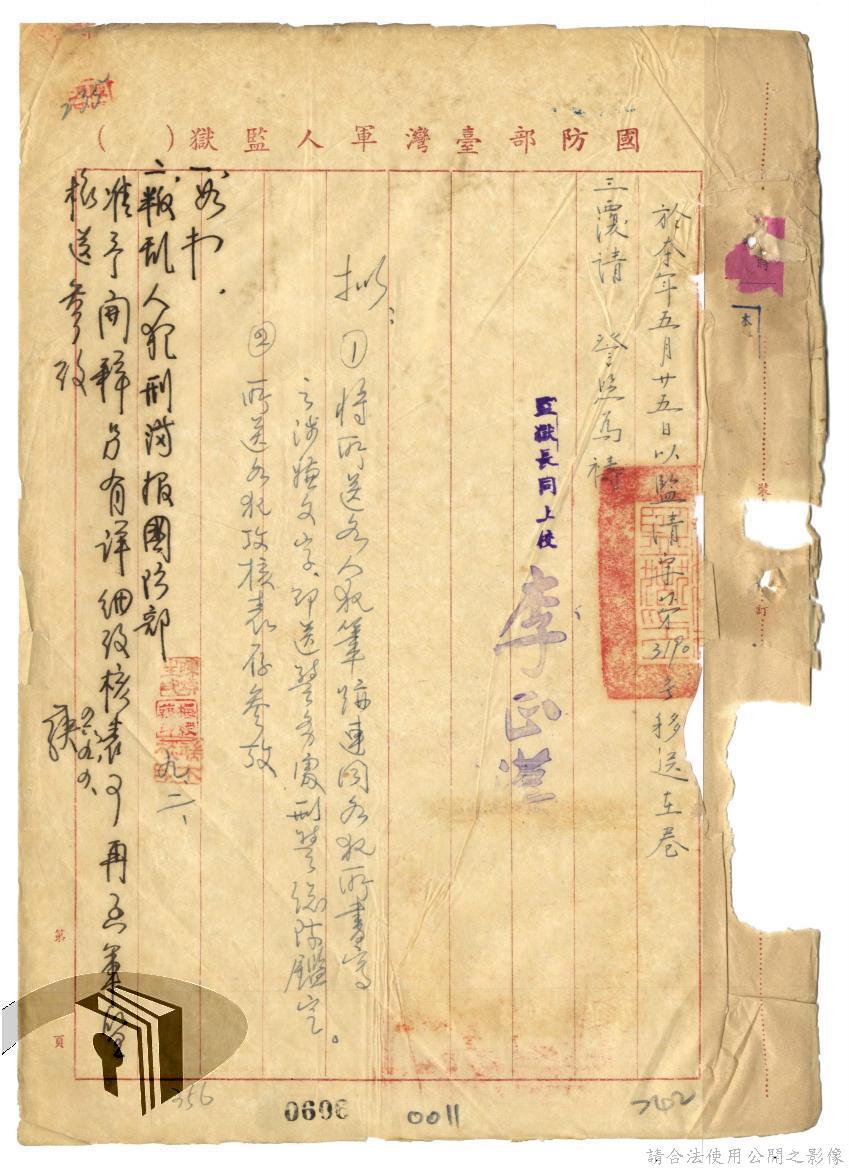 國防部臺灣軍人監獄（　）
於本年五月廿五日以監情字第3190号移送在卷
三、覆請　詧照為禱
監獄長同上校
李正漢
拟：
①將所送各人犯筆跡連同各犯所書寫
之涉嫌文字、即送警务處刑警總隊鑑定。
②所送各犯攷核表存參攷
九、二、
一、如才.
二、叛乱人犯刑滿报國防部
准予開釋另有详細攷核表可再
核送參攷
裝
訂
本
第
頁
356
0606
0011
702
請合法使用公開之影像